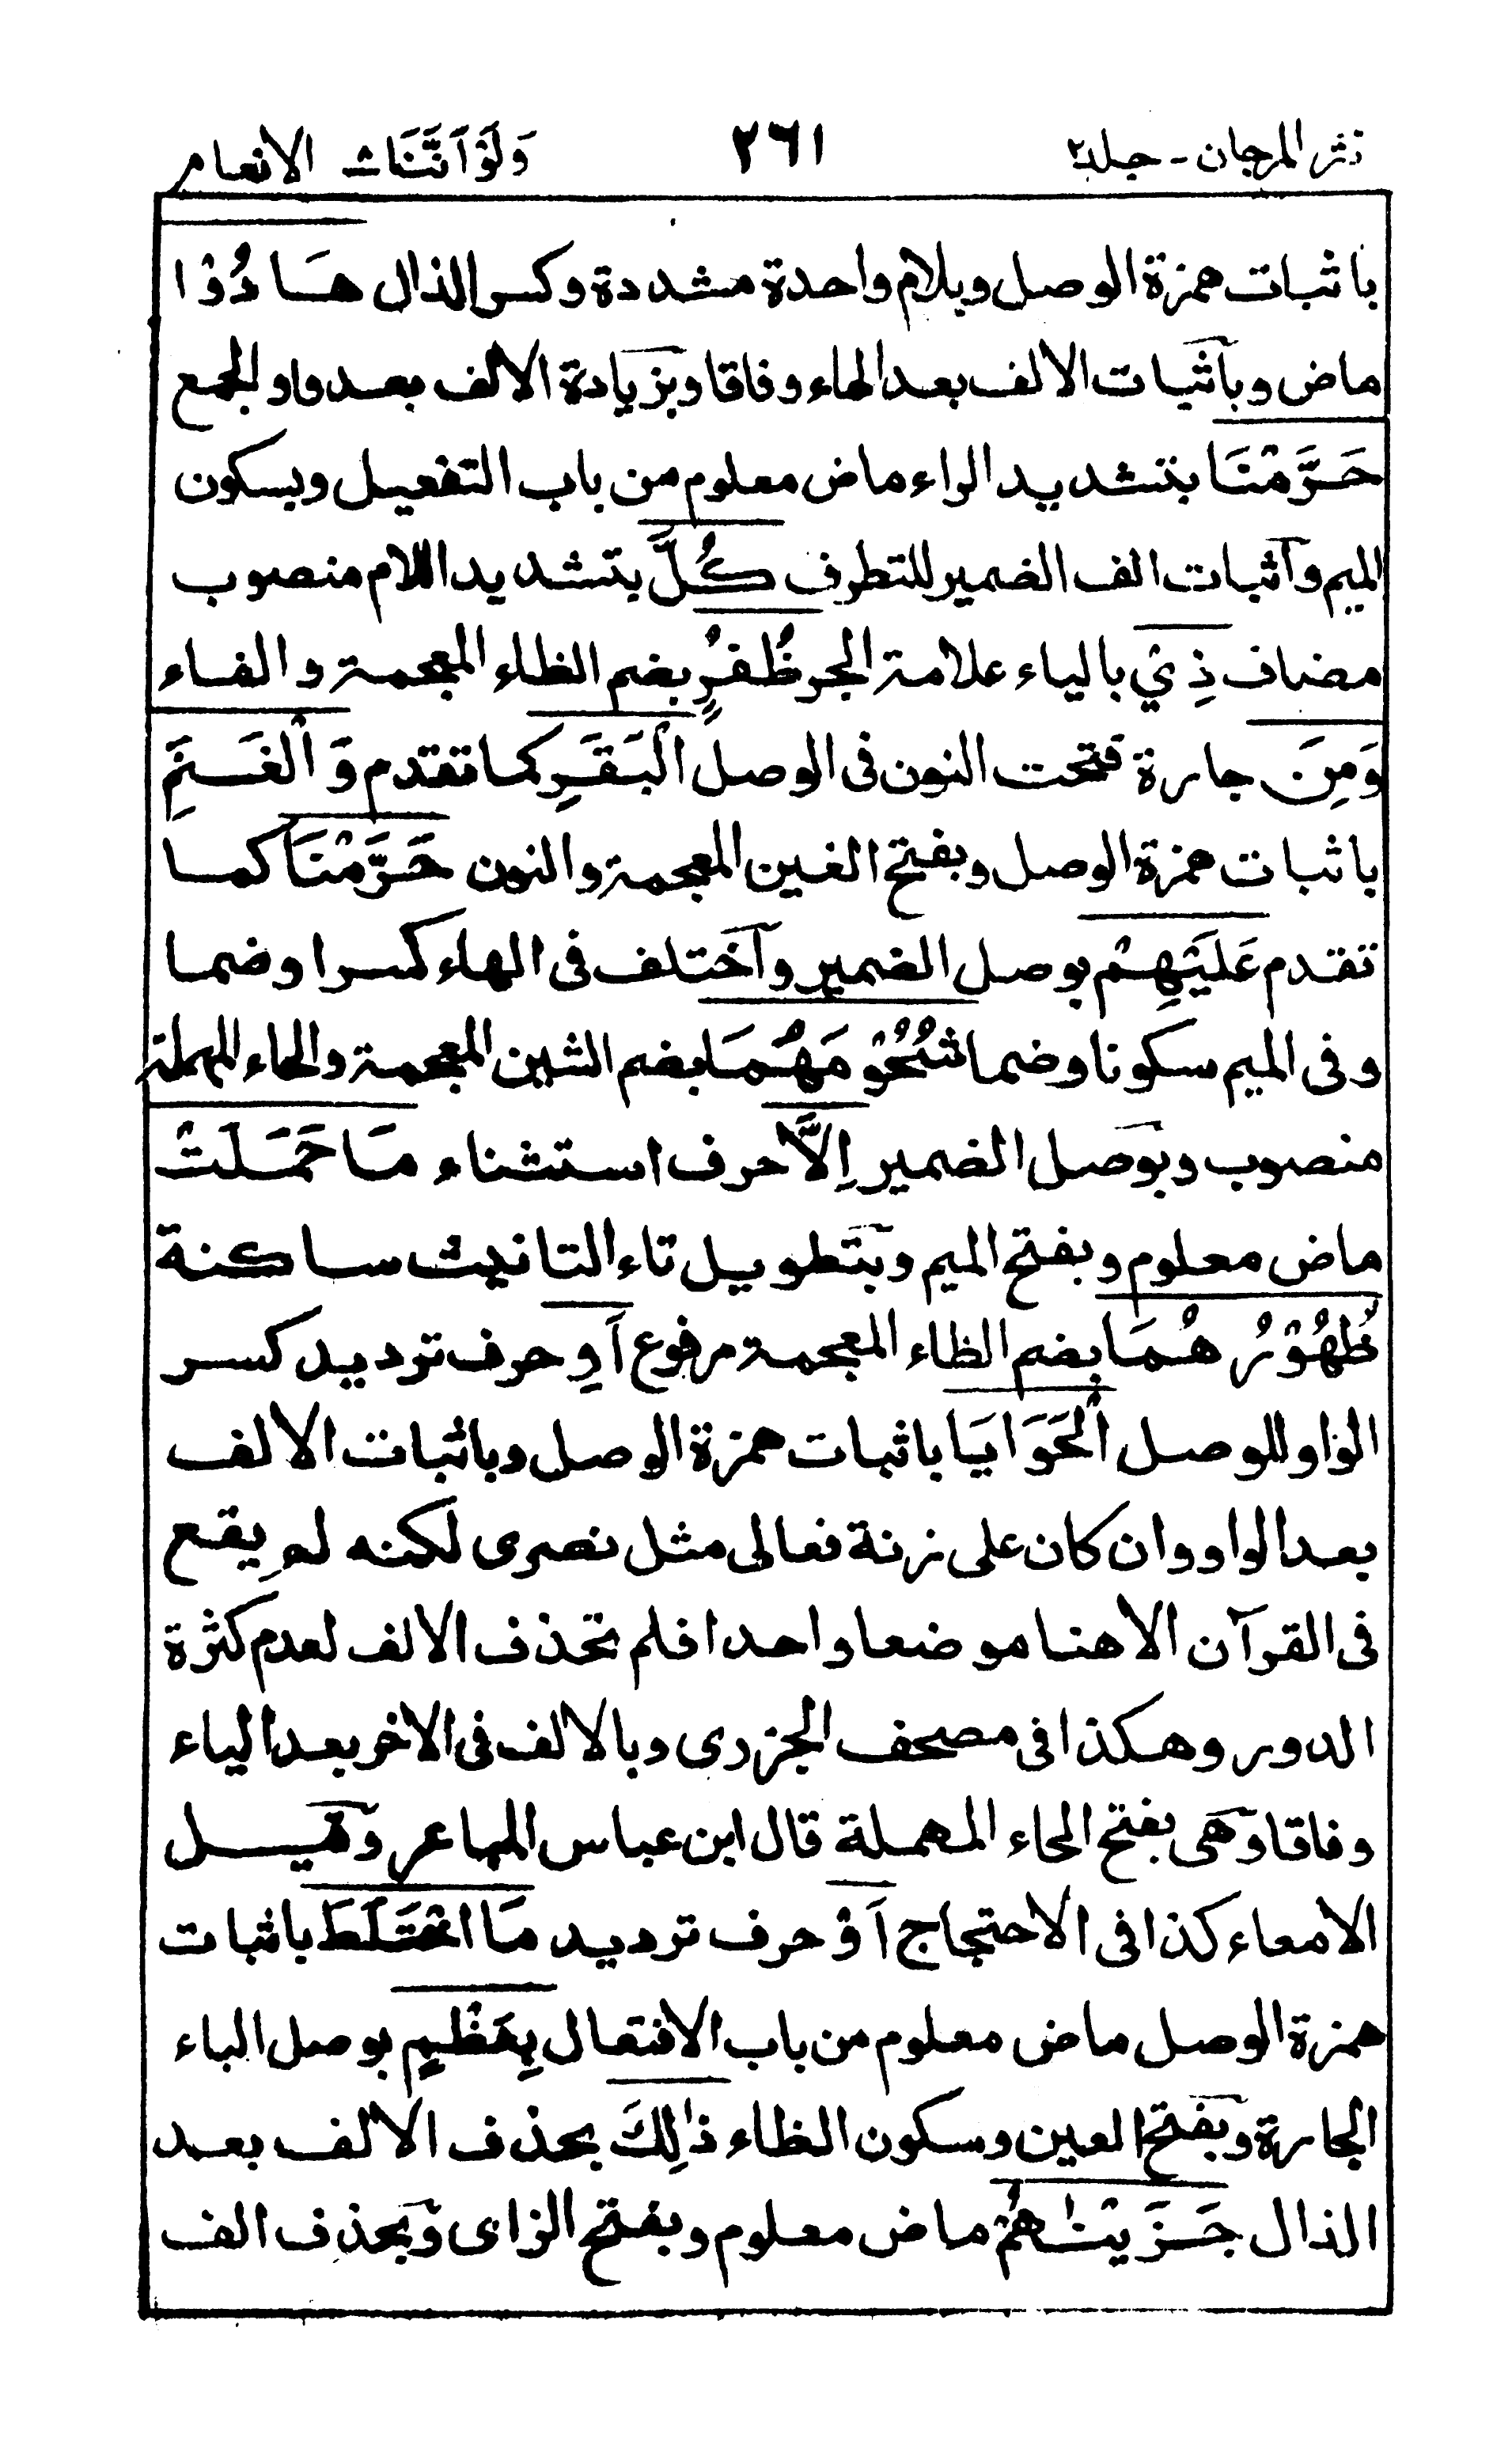 نثر المرجان - جلد٢ ٢٦١ وَلَوْ اَنَّنَا الانعام
باثبات همزة الوصل وبلام واحدة مشددة وكسر الذال هَادُوْا
ماض وبآثبات الالف بعد الهاء وفاقا وبزيادة الالف بعد واو الجمع
حَرَّمْنَا بتشديد الراء ماض معلوم من باب التفعيل وبسكون
الميم وآثبات الف الضمير للتطرف كُلَّ بتشديد اللام منصوب
مضاف ذِيْ بالياء علامة الجر ظُفُرٍ بضم الظاء المعجمة والفاء
وَمِنَ جارة فتحت النون فى الوصل الْبَقَرِ كما تقدم وَالْغَنَمِ
باثبات همزة الوصل وبفتح الغين المعجمة والنون حَرَّمْنَا كما
تقدم عَلَيْهِمْ بوصل الضمير وآختلف فى الهاء كسرا وضما
وفى الميم سكونا وضما شُحُوْمَهُمَا بضم الشين المعجمة والحاء المهملة
منصوب وبوصل الضمير اِلَّا حرف استثناء مَا حَمَلَتْ
ماض معلوم وبفتح الميم وبتطويل تاء التانيث ساكنة
ظُهُوْرُ هُمَا بضم الظاء المعجمة مرفوع اَوِ حرف ترديد كسر
الواو للوصل الْحَوَايَا باثبات همزة الوصل وباثبات الالف
بعد الواو وان كان على زنة فعالى مثل نصرى لكنه لم يقع
فى القرآن الا هنا موضعا واحدا فلم تحذف الالف لعدم كثرة
الدور وهكذا فى مصحف الجزرى وبالالف فى الاخر بعد الياء
وفاقا وهى بفتح الحاء المهملة قال ابن عباس المباعر وقيل
الامعاء كذا فى الاحتجاج اَوْ حرف ترديد مَا اخْتَلَطَ باثبات
همزة الوصل ماض معلوم من باب الافتعال بِعَظْمٍ بوصل الباء
الجارة وبفتح العين وسكون الظاء ذٰلِكَ بحذف الالف بعد
الذال جَزَيْنٰهُمْ ماض معلوم وبفتح الزاى وبحذف الف